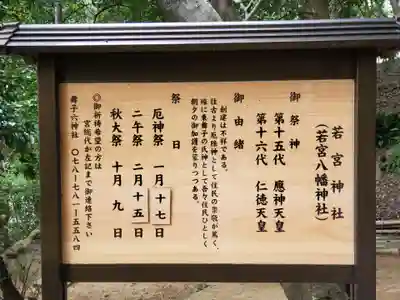 若宮神社
（若宮八幡神社）
御祭神
第十五代 應神天皇
第十六代 仁徳天皇
御由緒
創建は不祥である。
往古より厄除神として住民の崇敬が篤く、
殊に東舞子の氏神として吾々住民ひとしく
朝夕の御加護を蒙りつつある。
祭日
厄神祭 一月十七日
二午祭 二月十五日
秋大祭 十月九日
◎御祈祷希望の方は
宮総代が左記まで御連絡下さい
舞子六神社 〇七八ー七八一ー五五八四